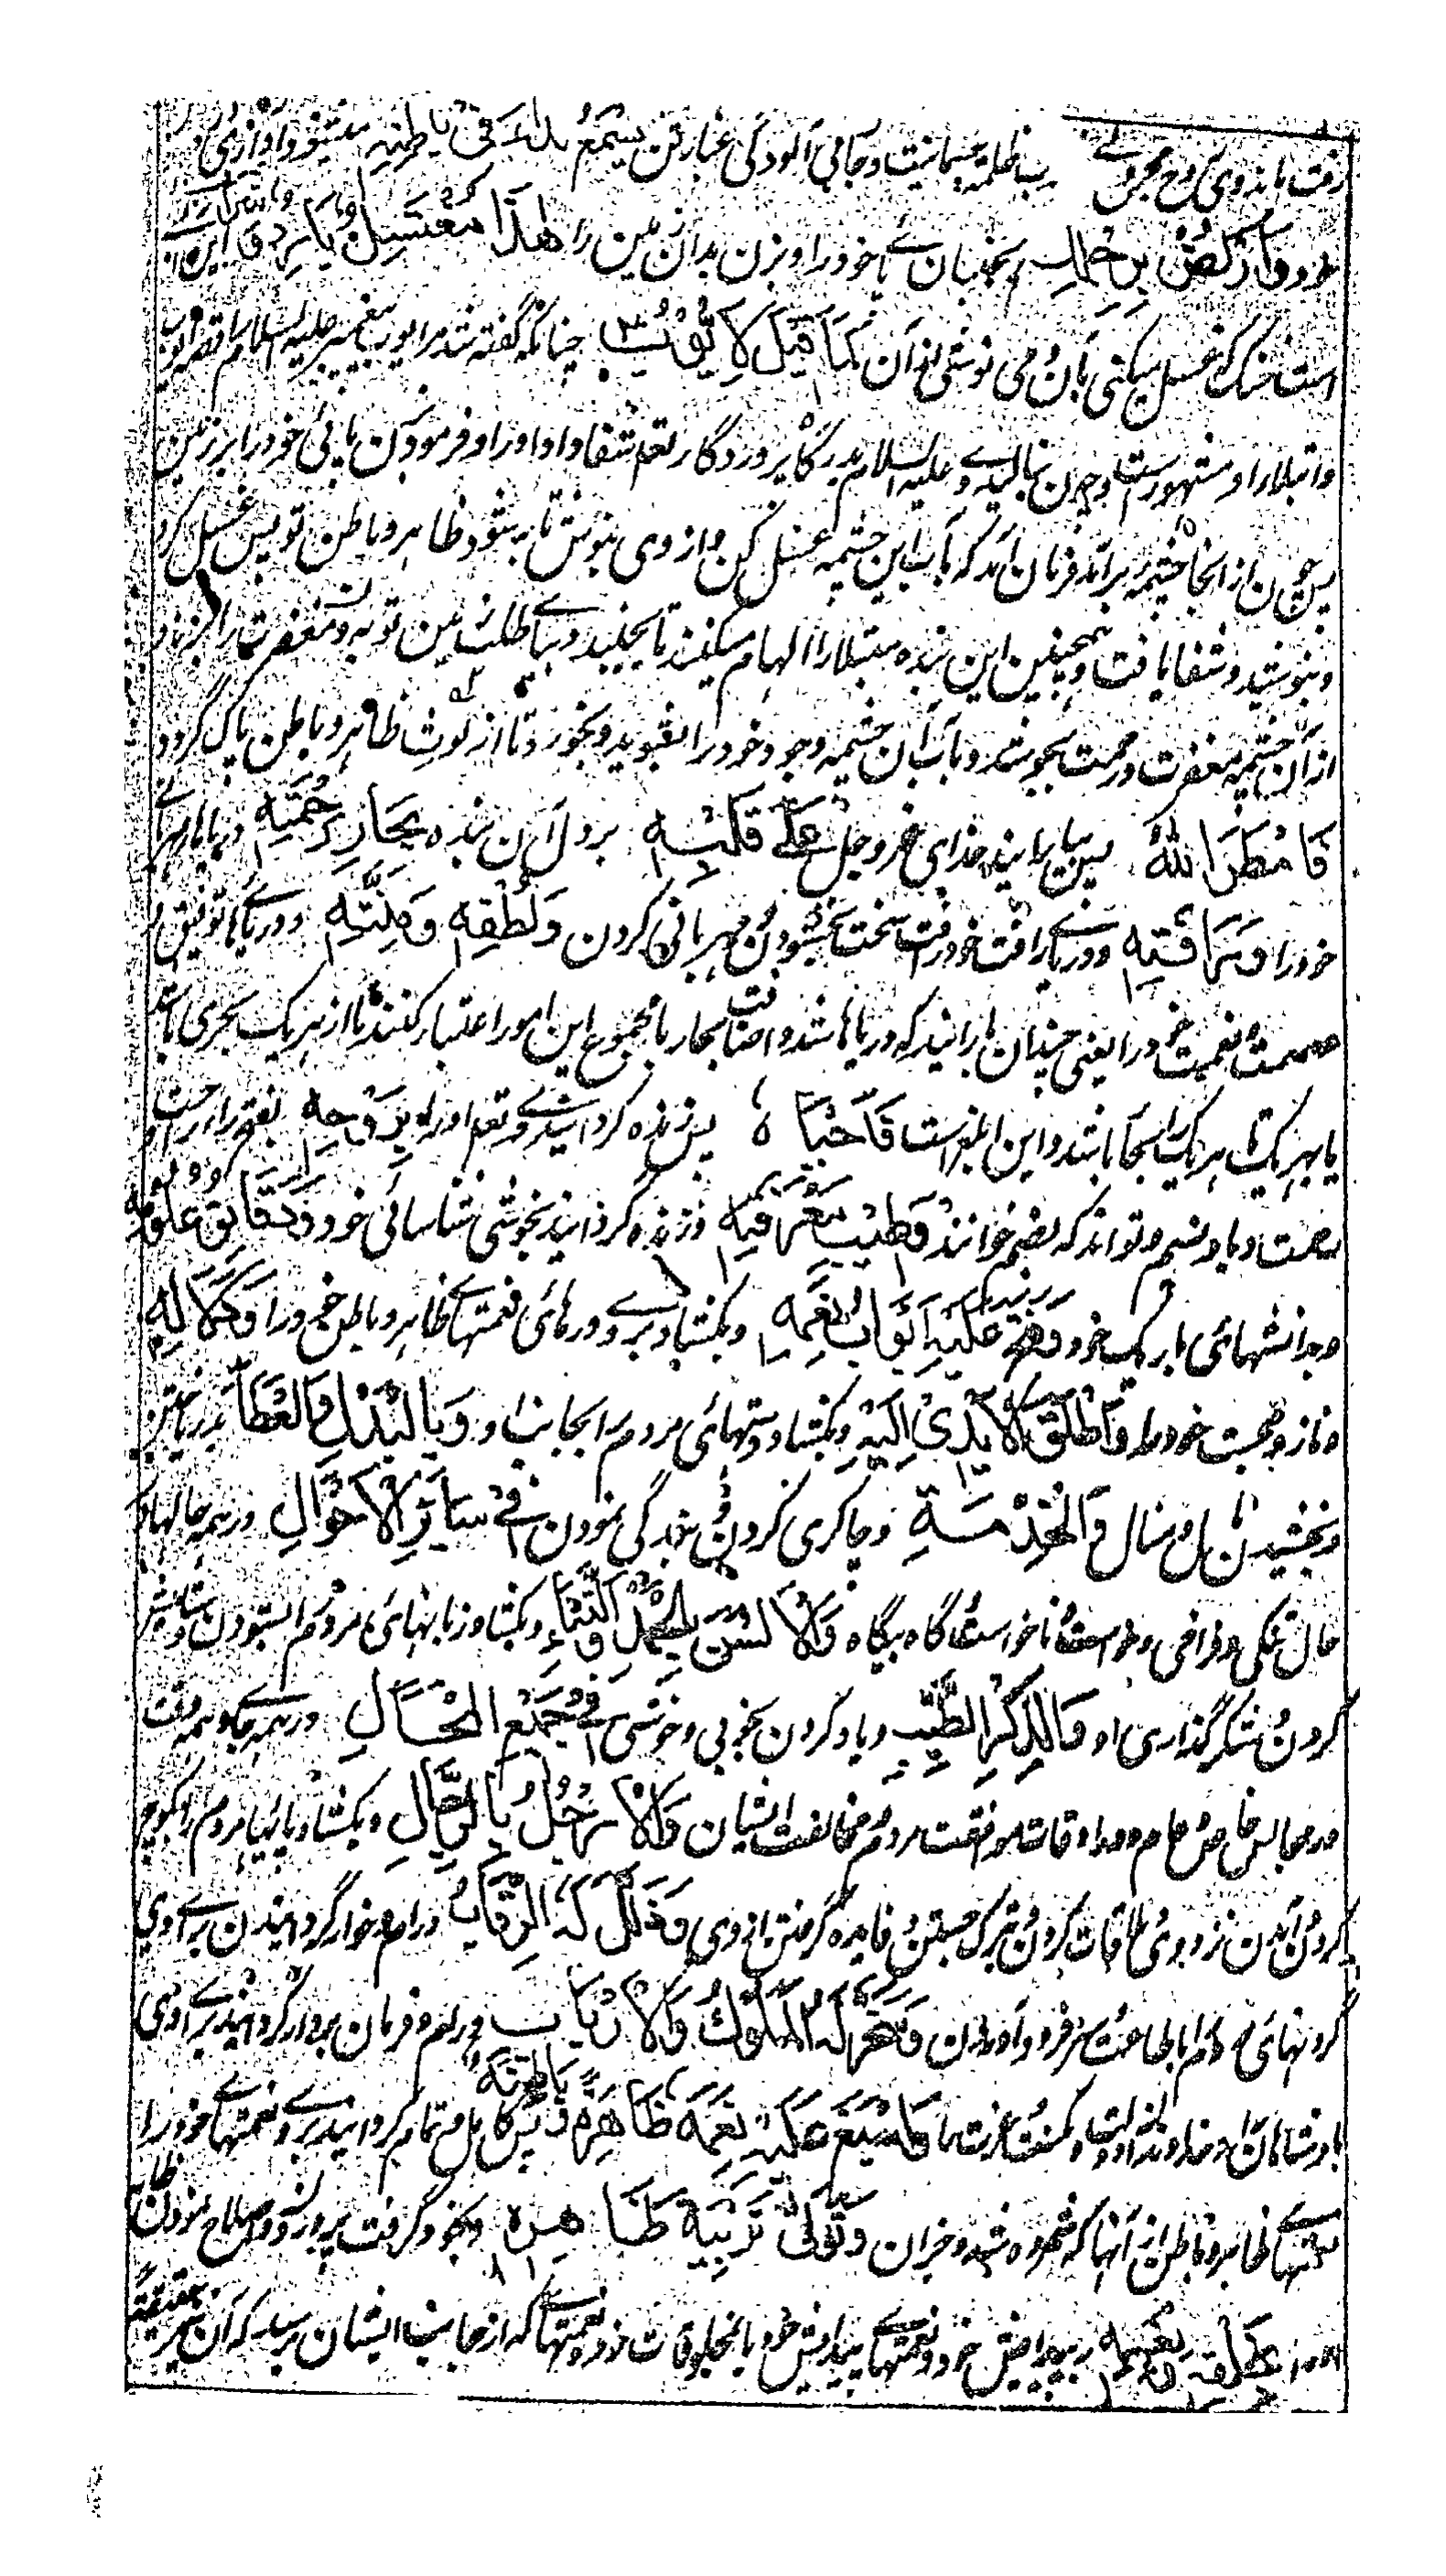 رفت مانده وی روح مجروح ب ظلمت جسمانیت و جامی آلودگی غبار تن یسمع نداء فی باطنه میشنود آوازی در
ارکض برجلک بجنبان پای خود را و بزن بدان زمین را هذا مغتسل بارد این آب
است خنک که غسل میکنی بآن و می نوشی از آن کما قیل لایوب چنانکه گفته شد مر ایوب پیغمبر علیه السلام را قصه ایوب
و ابتلای او مشهور است و چون بنالید وی علیه السلام بدرگاه پروردگار تعالی شفا داد او را و فرمود بزن پائی خود را بر زمین
پس چون زد از انجا چشمه برآمد فرمان آمد که بآب این چشمه غسل کن و از وی بنوش تا به شود ظاهر و باطن تو پس غسل کرد
و بنوشید و شفا یافت و همچنین این بنده مبتلا را الهام میکنند تا بجنبد و بپای طلب زمین توبه و مغفرت را بزند و
از آن چشمه مغفرت و رحمت بجوشد و بآب آن چشمه وجود خود را بشوید و بخورد تا از لوث ظاهر و باطن پاک گردد
فامطر الله پس بباراند خدای عز و جل علی قلبه بر دل آن بنده بحار رحمته دریاهای
خود را ورأفته و دریای رافت خود رافت سخت بخشودن و مهربانی کردن ولطفه ومنته و دریاهای توفیق و
عصمت و نعمت خود را یعنی چندان باراند که دریاها شد و اضافت بحار با مجموع این امور اعتبار کنند تا از هر یک بحری باشد
یا بهر یک تا هر یک را بحار باشد و این ابلغ است فاحیاه پس زنده گردانید وی تعالی او را بروحه بفتح را راحت
و باد نسیم و تواند که بضم خوانند وطیب معرفته و زنده گردانید بخوشی شناسائی خود ودقایق علومه
و بدانشهائی باریک خود وفتح علیه ابواب نعمه و بکشاد بر وی درهائی نعمتهای ظاهر و باطن خود را ودلاله
و ناز و محبت خود را واطلق الایدی الیه و بکشاد دستهائی مردم را بجانب او وبالبذل والعطاء
و بخشیدن مال و منال والخدمة و چاکری کردن و بندگی نمودن فی سایر الاحوال در همه حالها
حال تنگی و فراخی و خواست و ناخواست و گاه بیگاه والالسن بالحمد والثناء و بکشاد زبانهائی مردم را بستودن و ستایش
کردن و شکر گذاری او والذکر الطیب و یاد کردن بخوبی و خوشی فی جمیع المحال در همه جا و همه وقت
در مجالس خاص و عام و در اوقات موافقت مردم و مخالفت ایشان والارجل بالترحال و بکشاد پایهای مردم را بکوچ
کردن و آمدن نزد وی و ملاقات کردن و تبرک جستن و فایده گرفتن از وی وذلل له الرقاب و رام و خوار گردانیدن برای وی
گردنهائی مردم را بطاعت و سر فرود آوردن وسخر له الملوک والارباب و رام و فرمان بردار گردانید برای وی
بادشاهان و خداوندان دولت و مکنت و عزت را واسبغ علیه نعمه ظاهرة وباطنة پس کامل و تمام گردانید بر وی نعمتهای خود را
نعمتهای ظاهر و باطن از آنها که شمرده شد و جز آن وتولی تربیة ظاهره و بخود گرفت پرورش و اصلاح نمودن ظاهر
بخلقه ونعمه بپیدایش خود و نعمتهای پیدایش خود یا بمخلوقات خود و نعمتها که از جانب ایشان برسد که آن نیز بحقیقت